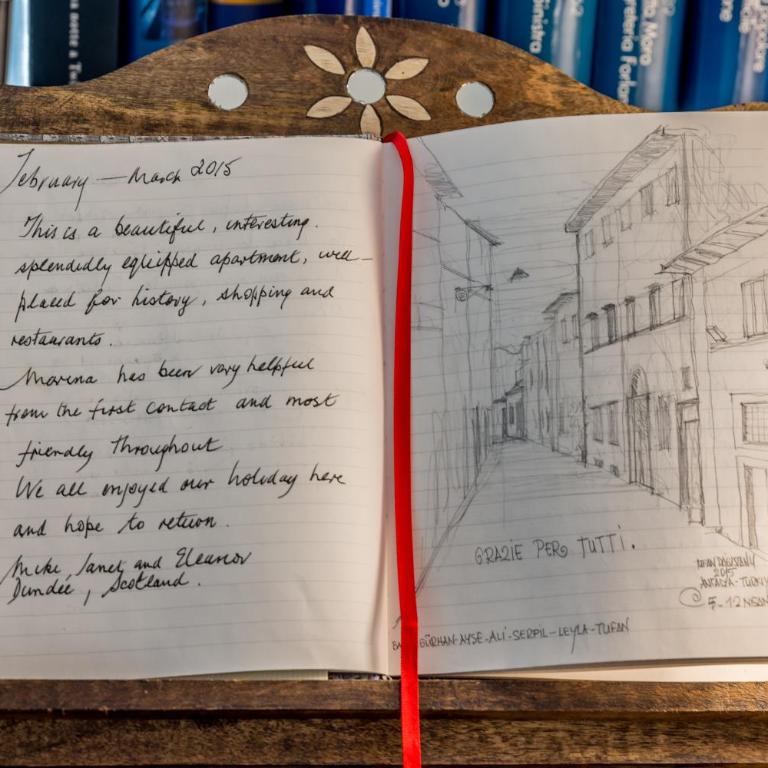 February — March 2015
This is a beautiful, interesting.
splendidly equipped apartment, well-
placed for history, shopping and
restaurants.
Marina has been very helpful
from the first contact and most
friendly throughout
We all enjoyed our holiday here
and hope to return.
Mike, Janet and Eleanor
Dundee, Scotland.
GRAZIE PER TUTTI.
2015
ANTALYA-TURKIY
5-12 NISAN
GÜRHAN-AYSE-ALİ-SERPIL-LEYLA-TUFAN